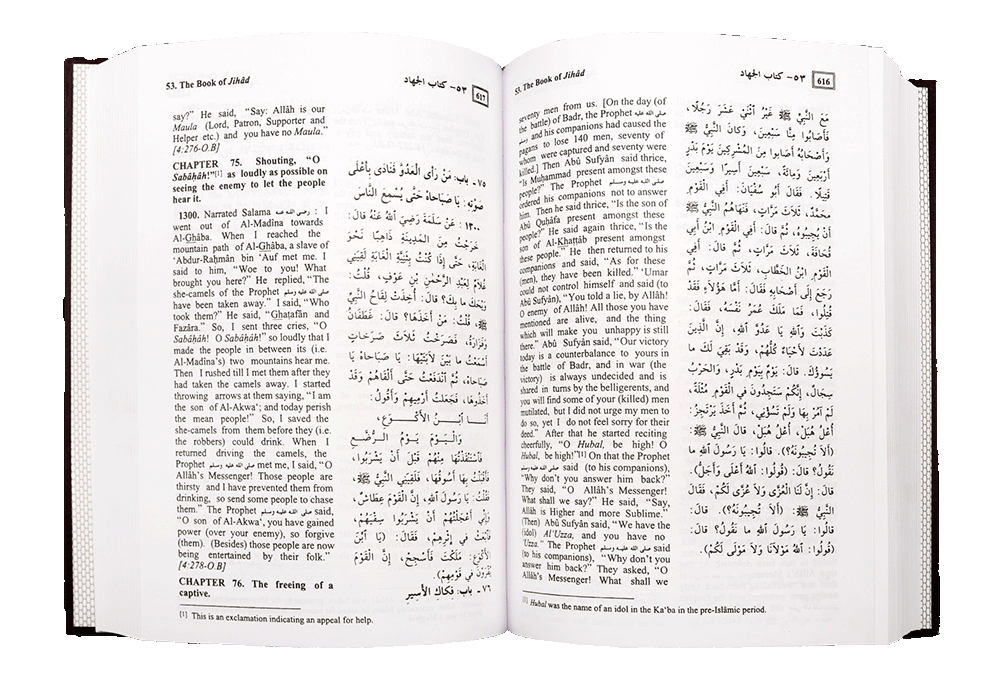 53. The Book of Jihâd
٥٣- كتاب الجهاد
616
seventy men from us. [On the day (of
the battle) of Badr, the Prophet صلى الله عليه وسلم
and his companions had caused the
pagans to lose 140 men, seventy of
whom were captured and seventy were
killed.] Then Abû Sufyân said thrice,
"Is Muhammad present amongst these
people?" The Prophet صلى الله عليه وسلم
ordered his companions not to answer
him. Then he said thrice, "Is the son of
Abû Quhâfa present amongst these
people?" He said again thrice, "Is the
son of Al-Khattâb present amongst
these people." He then returned to his
companions and said, "As for these
(men), they have been killed." 'Umar
could not control himself and said (to
Abû Sufyân), "You told a lie, by Allâh!
O enemy of Allâh! All those you have
mentioned are alive, and the thing
which will make you unhappy is still
there." Abû Sufyân said, "Our victory
today is a counterbalance to yours in
the battle of Badr, and in war (the
victory) is always undecided and is
shared in turns by the belligerents, and
you will find some of your (killed) men
mutilated, but I did not urge my men to
do so, yet I do not feel sorry for their
deed." After that he started reciting
cheerfully, "O Hubal, be high! O
Hubal, be high!"[1] On that the Prophet
صلى الله عليه وسلم said (to his companions),
"Why don't you answer him back?"
They said, "O Allâh's Messenger!
What shall we say?" He said, "Say,
Allâh is Higher and more Sublime."
(Then) Abû Sufyân said, "We have the
(idol) Al'Uzza, and you have no
'Uzza." The Prophet صلى الله عليه وسلم said
(to his companions), "Why don't you
answer him back?" They asked, "O
Allâh's Messenger! What shall we
مَعَ النَّبِيِّ ﷺ غَيْرُ اثْنَيْ عَشَرَ رَجُلًا،
فَأَصَابُوا مِنَّا سَبْعِينَ، وَكَانَ النَّبِيُّ ﷺ
وَأَصْحَابُهُ أَصَابُوا مِنَ المُشْرِكِينَ يَوْمَ بَدْرٍ
أَرْبَعِينَ وَمِائَةً، سَبْعِينَ أَسِيرًا وَسَبْعِينَ
قَتِيلًا، فَقَالَ أَبُو سُفْيَانَ: أَفِي القَوْمِ
مُحَمَّدٌ، ثَلَاثَ مَرَّاتٍ، فَنَهَاهُمُ النَّبِيُّ ﷺ
أَنْ يُجِيبُوهُ، ثُمَّ قَالَ: أَفِي القَوْمِ ابْنُ أَبِي
قُحَافَةَ، ثَلَاثَ مَرَّاتٍ، ثُمَّ قَالَ: أَفِي
القَوْمِ ابْنُ الخَطَّابِ، ثَلَاثَ مَرَّاتٍ، ثُمَّ
رَجَعَ إِلَى أَصْحَابِهِ فَقَالَ: أَمَّا هَؤُلَاءِ فَقَدْ
قُتِلُوا، فَمَا مَلَكَ عُمَرُ نَفْسَهُ، فَقَالَ:
كَذَبْتَ وَاللهِ يَا عَدُوَّ اللهِ، إِنَّ الَّذِينَ
عَدَدْتَ لَأَحْيَاءٌ كُلُّهُمْ، وَقَدْ بَقِيَ لَكَ مَا
يَسُوؤُكَ. قَالَ: يَوْمٌ بِيَوْمِ بَدْرٍ، وَالحَرْبُ
سِجَالٌ، إِنَّكُمْ سَتَجِدُونَ فِي القَوْمِ مُثْلَةً،
لَمْ آمُرْ بِهَا وَلَمْ تَسُؤْنِي، ثُمَّ أَخَذَ يَرْتَجِزُ:
أُعْلُ هُبَلْ، أُعْلُ هُبَلْ، قَالَ النَّبِيُّ ﷺ:
(أَلَا تُجِيبُونَهُ؟). قَالُوا: يَا رَسُولَ اللهِ مَا
نَقُولُ؟ قَالَ: (قُولُوا: اللهُ أَعْلَى وَأَجَلُّ).
قَالَ: إِنَّ لَنَا العُزَّى وَلَا عُزَّى لَكُمْ، فَقَالَ
النَّبِيُّ ﷺ: (أَلَا تُجِيبُونَهُ؟). قَالَ:
قَالُوا: يَا رَسُولَ اللهِ مَا نَقُولُ؟ قَالَ:
(قُولُوا: اللهُ مَوْلَانَا وَلَا مَوْلَى لَكُمْ).
[1] Hubal was the name of an idol in the Ka'ba in the pre-Islâmic period.
53. The Book of Jihâd
٥٣- كتاب الجهاد
٦١٧
say?" He said, "Say: Allâh is our
Maula (Lord, Patron, Supporter and
Helper etc.) and you have no Maula."
[4:276-O.B]
CHAPTER 75. Shouting, "O
Sabâhâh!"[1] as loudly as possible on
seeing the enemy to let the people
hear it.
1300. Narrated Salama رضى الله عنه : I
went out of Al-Madîna towards
Al-Ghâba. When I reached the
mountain path of Al-Ghâba, a slave of
'Abdur-Rahmân bin 'Auf met me. I
said to him, "Woe to you! What
brought you here?" He replied, "The
she-camels of the Prophet صلى الله عليه وسلم
have been taken away." I said, "Who
took them?" He said, "Ghatafân and
Fazâra." So, I sent three cries, "O
Sabâhâh! O Sabâhâh!" so loudly that I
made the people in between its (i.e.
Al-Madîna's) two mountains hear me.
Then I rushed till I met them after they
had taken the camels away. I started
throwing arrows at them saying, "I am
the son of Al-Akwa'; and today perish
the mean people!" So, I saved the
she-camels from them before they (i.e.
the robbers) could drink. When I
returned driving the camels, the
Prophet صلى الله عليه وسلم met me, I said, "O
Allâh's Messenger! Those people are
thirsty and I have prevented them from
drinking, so send some people to chase
them." The Prophet صلى الله عليه وسلم said,
"O son of Al-Akwa', you have gained
power (over your enemy), so forgive
(them). (Besides) those people are now
being entertained by their folk."
[4:278-O.B]
CHAPTER 76. The freeing of a
captive.
٧٥- باب: مَنْ رَأَى العَدُوَّ فَنَادَى بِأَعْلَى
صَوْتِهِ: يَا صَبَاحَاهْ حَتَّى يُسْمِعَ النَّاسَ
١٣٠٠ : عَنْ سَلَمَةَ رَضِيَ اللهُ عَنْهُ قَالَ:
خَرَجْتُ مِنَ المَدِينَةِ ذَاهِبًا نَحْوَ
الغَابَةِ، حَتَّى إِذَا كُنْتُ بِثَنِيَّةِ الغَابَةِ لَقِيَنِي
غُلَامٌ لِعَبْدِ الرَّحْمَنِ بْنِ عَوْفٍ، قُلْتُ:
وَيْحَكَ مَا بِكَ؟ قَالَ: أُخِذَتْ لِقَاحُ النَّبِيِّ
ﷺ، قُلْتُ: مَنْ أَخَذَهَا؟ قَالَ: غَطَفَانُ
وَفَزَارَةُ، فَصَرَخْتُ ثَلَاثَ صَرَخَاتٍ
أَسْمَعْتُ مَا بَيْنَ لَابَتَيْهَا: يَا صَبَاحَاهْ يَا
صَبَاحَاهْ، ثُمَّ انْدَفَعْتُ حَتَّى أَلْقَاهُمْ وَقَدْ
أَخَذُوهَا، فَجَعَلْتُ أَرْمِيهِمْ وَأَقُولُ:
أَنَا ابْنُ الأَكْوَعِ،
وَاليَوْمُ يَوْمُ الرُّضَّعِ
فَاسْتَنْقَذْتُهَا مِنْهُمْ قَبْلَ أَنْ يَشْرَبُوا،
فَأَقْبَلْتُ بِهَا أَسُوقُهَا، فَلَقِيَنِي النَّبِيُّ ﷺ،
فَقُلْتُ: يَا رَسُولَ اللهِ، إِنَّ القَوْمَ عِطَاشٌ،
وَإِنِّي أَعْجَلْتُهُمْ أَنْ يَشْرَبُوا سِقْيَهُمْ،
فَابْعَثْ فِي إِثْرِهِمْ، فَقَالَ: (يَا ابْنَ
الأَكْوَعِ: مَلَكْتَ فَأَسْجِحْ، إِنَّ القَوْمَ
يُقْرَوْنَ فِي قَوْمِهِمْ).
٧٦- باب: فَكاكِ الأَسِيرِ
[1] This is an exclamation indicating an appeal for help.